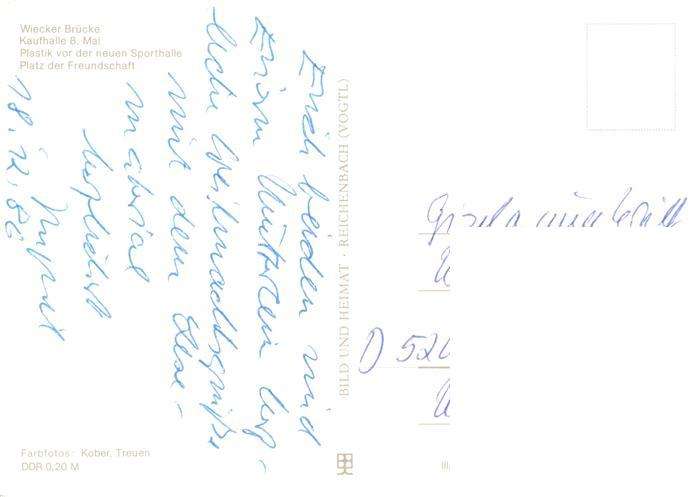 Wiecker Brücke
Kaufhalle 8. Mai
Plastik vor der neuen Sporthalle
Platz der Freundschaft
Euch beiden und
Eurem Mütterlein herz-
liche Weihnachtsgrüße
mit dem
material
herzlichst
18.12.86
BILD UND HEIMAT · REICHENBACH (VOGTL)
Gisela
D 520
Farbfotos: Kober, Treuen
DDR 0,20 M
III